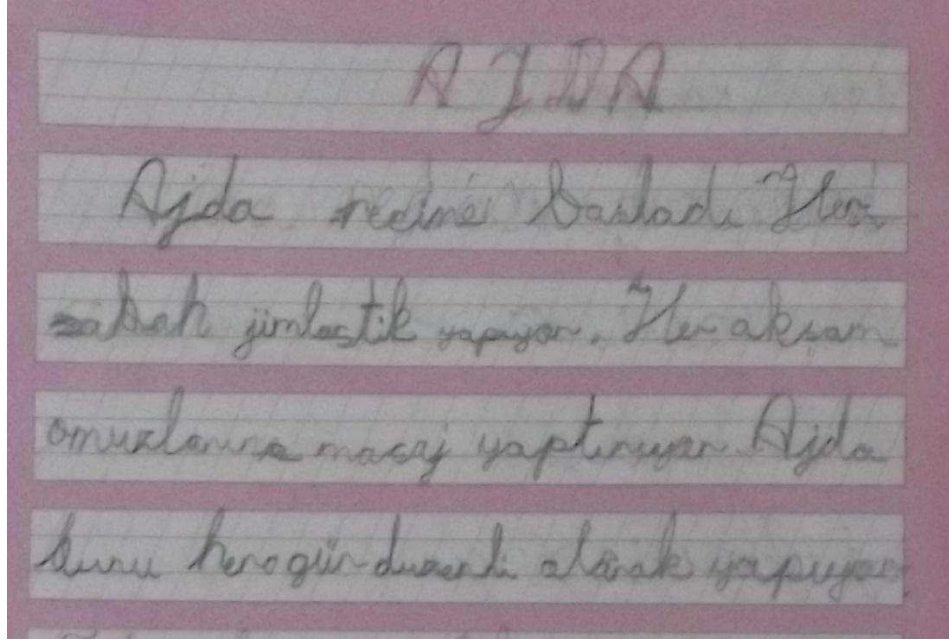 AJDA
Ajda rejime başladı Her
sabah jimlastik yapıyor. Her akşam
omuzlarına masaj yaptırıyor Ajda
bunu hergün düzenli olarak yapıyor